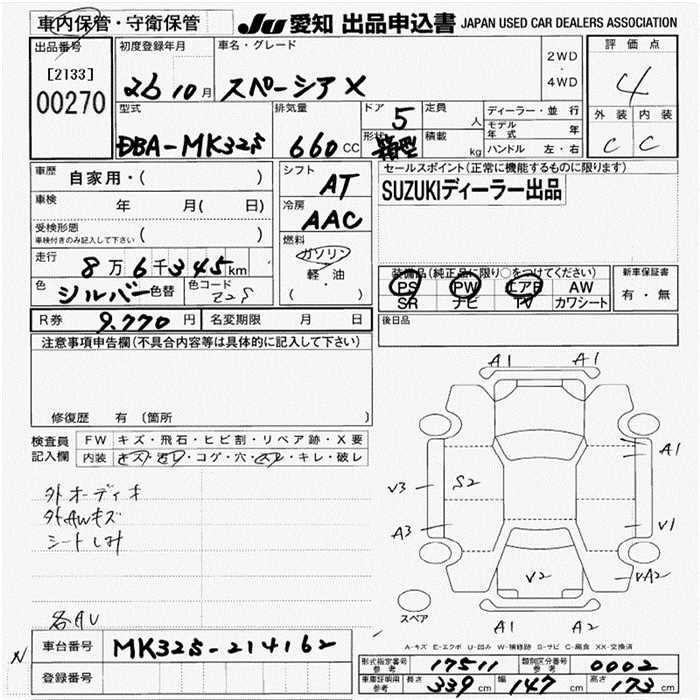 車内保管・守衛保管
JU 愛知 出品申込書 JAPAN USED CAR DEALERS ASSOCIATION
出品番号
[2133]
00270
初度登録年月
26 10月
車名・グレード
スペーシア X
2WD
・
4WD
評価点
4
外装 内装
C C
型式
DBA-MK32S
排気量
660 CC
ドア 5
形状 箱型
定員 人
積載 kg
ディーラー・並行
モデル年式 年
ハンドル 左・右
車歴
自家用・( )
車検
年 月( 日)
受検形態
車検付きのみ記入して下さい ( )
走行
8万6千345km
色 シルバー 色替 色コード Z2S
シフト
AT
冷房
AAC
燃料
ガソリン
軽・油
( )
セールスポイント(正常に機能するものに限ります)
SUZUKIディーラー出品
装備品(純正品に限り○をつけてください)
PS PW エアB AW
SR ナビ TV カワシート
新車保証書
有・無
R券 9.770 円 名変期限 月 日
後日品
注意事項申告欄(不具合内容等は具体的に記入して下さい)
修復歴 有 〔箇所 〕
検査員
記入欄
FW キズ・飛石・ヒビ割・リペア跡・X要
内装 キズ・汚レ・コゲ・穴・スレ・キレ・破レ
外オーディオ
外AWキズ
シートしみ
各AU
A1 A1
A1
V3 S2
A3 V1
V2 VA2
A1 A1
スペア
A-キズ E-エクボ U-凹み W-補修跡 S-サビ C-腐食 XX-交換済
N
車台番号 MK32S-214162
登録番号
形式指定番号
参考
17511
類別区分番号
参考
0002
車庫証明用
参考
長さ 339 cm 幅 147 cm 高さ 173 cm